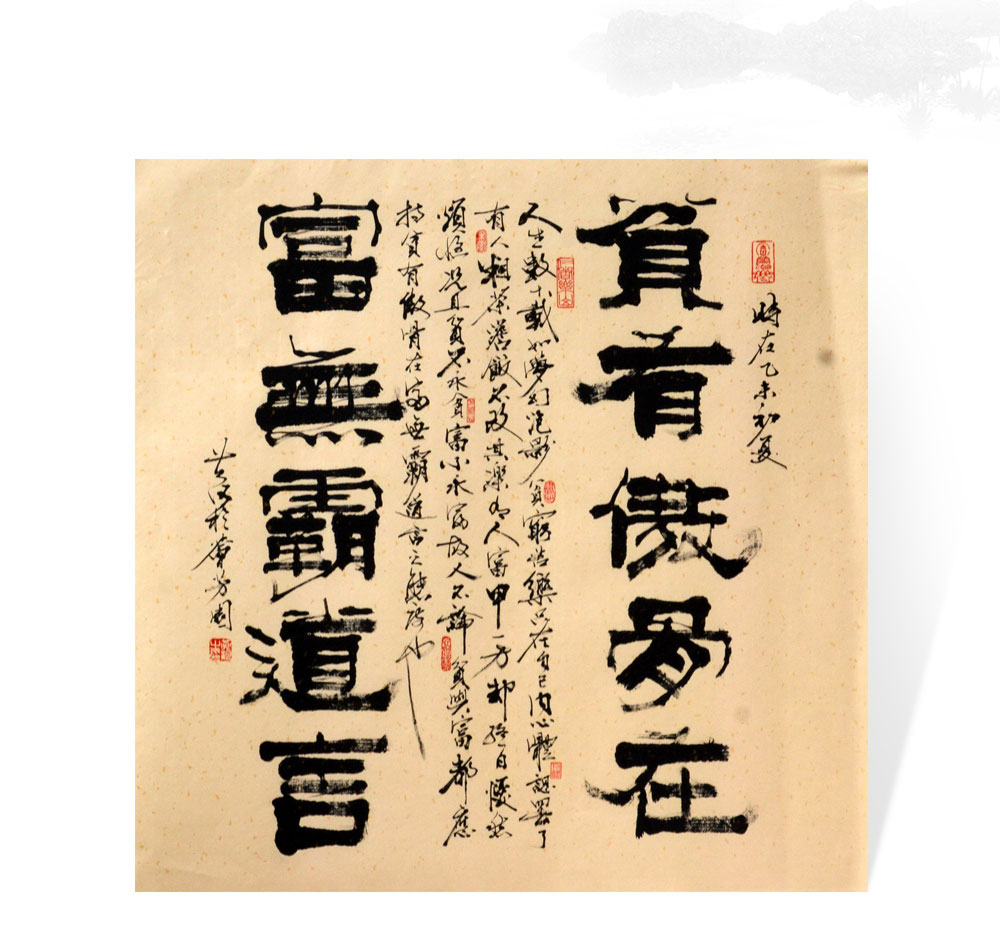 時在乙未初夏
貧有傲骨在
人生數十載如夢幻泡影貧窮苦樂只在自己內心體認罷了
有人粗茶淡飯不改其樂有人富甲一方卻終日憂愁
煩惱況且貧不永貧富不永富故人不論貧與富都應
持貧有傲骨在富無霸道言之態度也
富無霸道言
於薈芳園